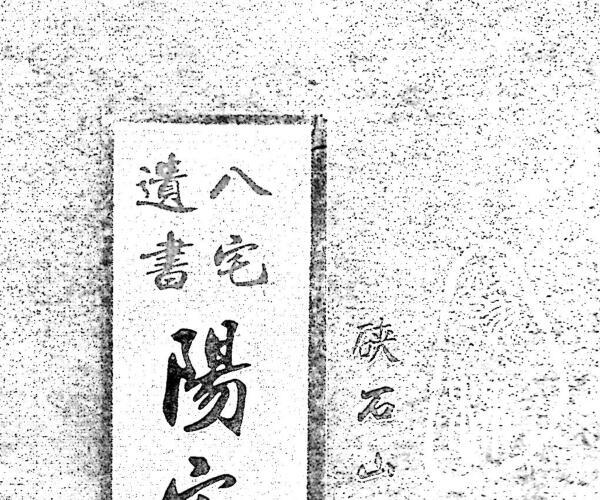 八宅
遺書
陽
硤石山